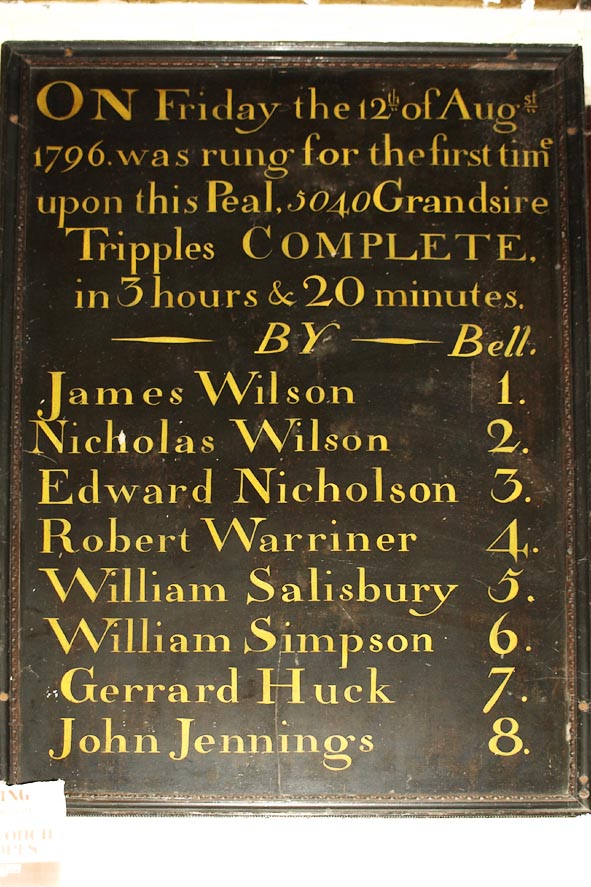 ON Friday the 12th of Augst
1796. was rung for the first time
upon this Peal, 5040 Grandsire
Tripples COMPLETE,
in 3 hours & 20 minutes.
BY Bell.
James Wilson 1.
Nicholas Wilson 2.
Edward Nicholson 3.
Robert Warriner 4.
William Salisbury 5.
William Simpson 6.
Gerrard Huck 7.
John Jennings 8.